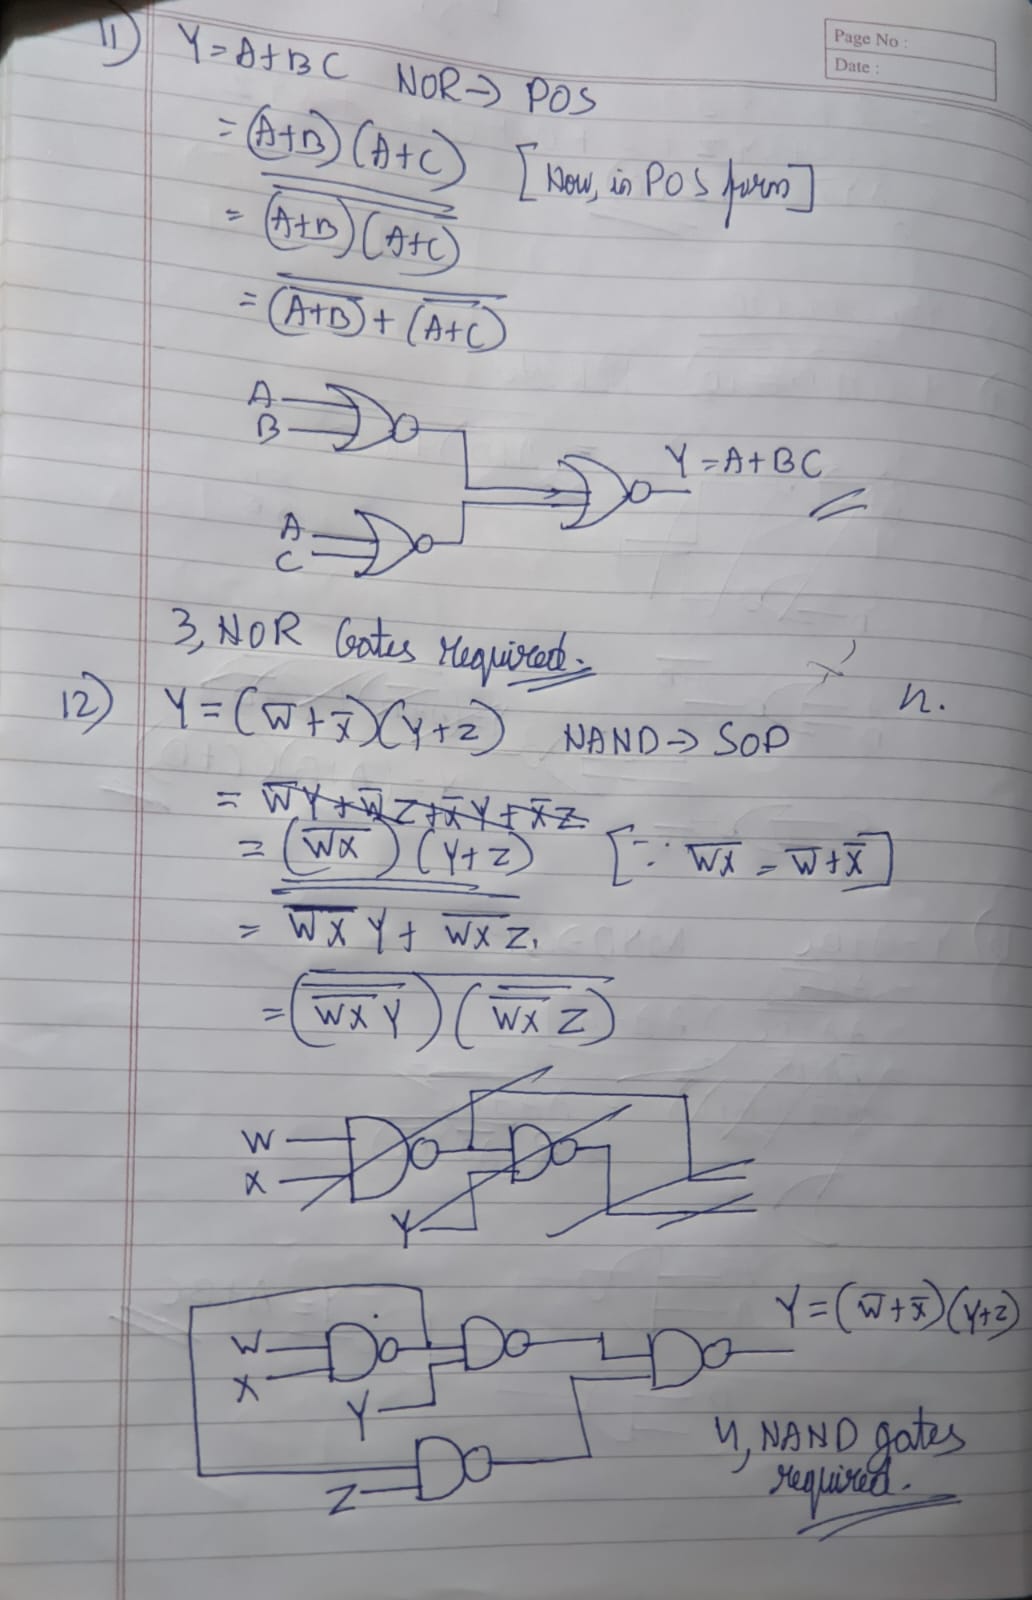 Page No :
Date :
11) Y = A+BC NOR → POS
= (A+B) (A+C) [Now, in POS form]
= \overline{\overline{(A+B)(A+C)}}
= \overline{\overline{(A+B)} + \overline{(A+C)}}
A
B
Y = A+BC
A
C
3, NOR Gates required.
n.
12) Y = (W̅+X̅)(Y+Z) NAND → SOP
= W̅Y+W̅Z+X̅Y+X̅Z
= (\overline{WX}) (Y+Z) [∵ \overline{WX} = W̅+X̅]
= \overline{\overline{\overline{WX} Y + \overline{WX} Z}}.
= \overline{\overline{(\overline{WX} Y)} \overline{(\overline{WX} Z)}}
W
X
Y
Y = (W̅+X̅)(Y+Z)
W
X
Y
Z
4, NAND gates
required.